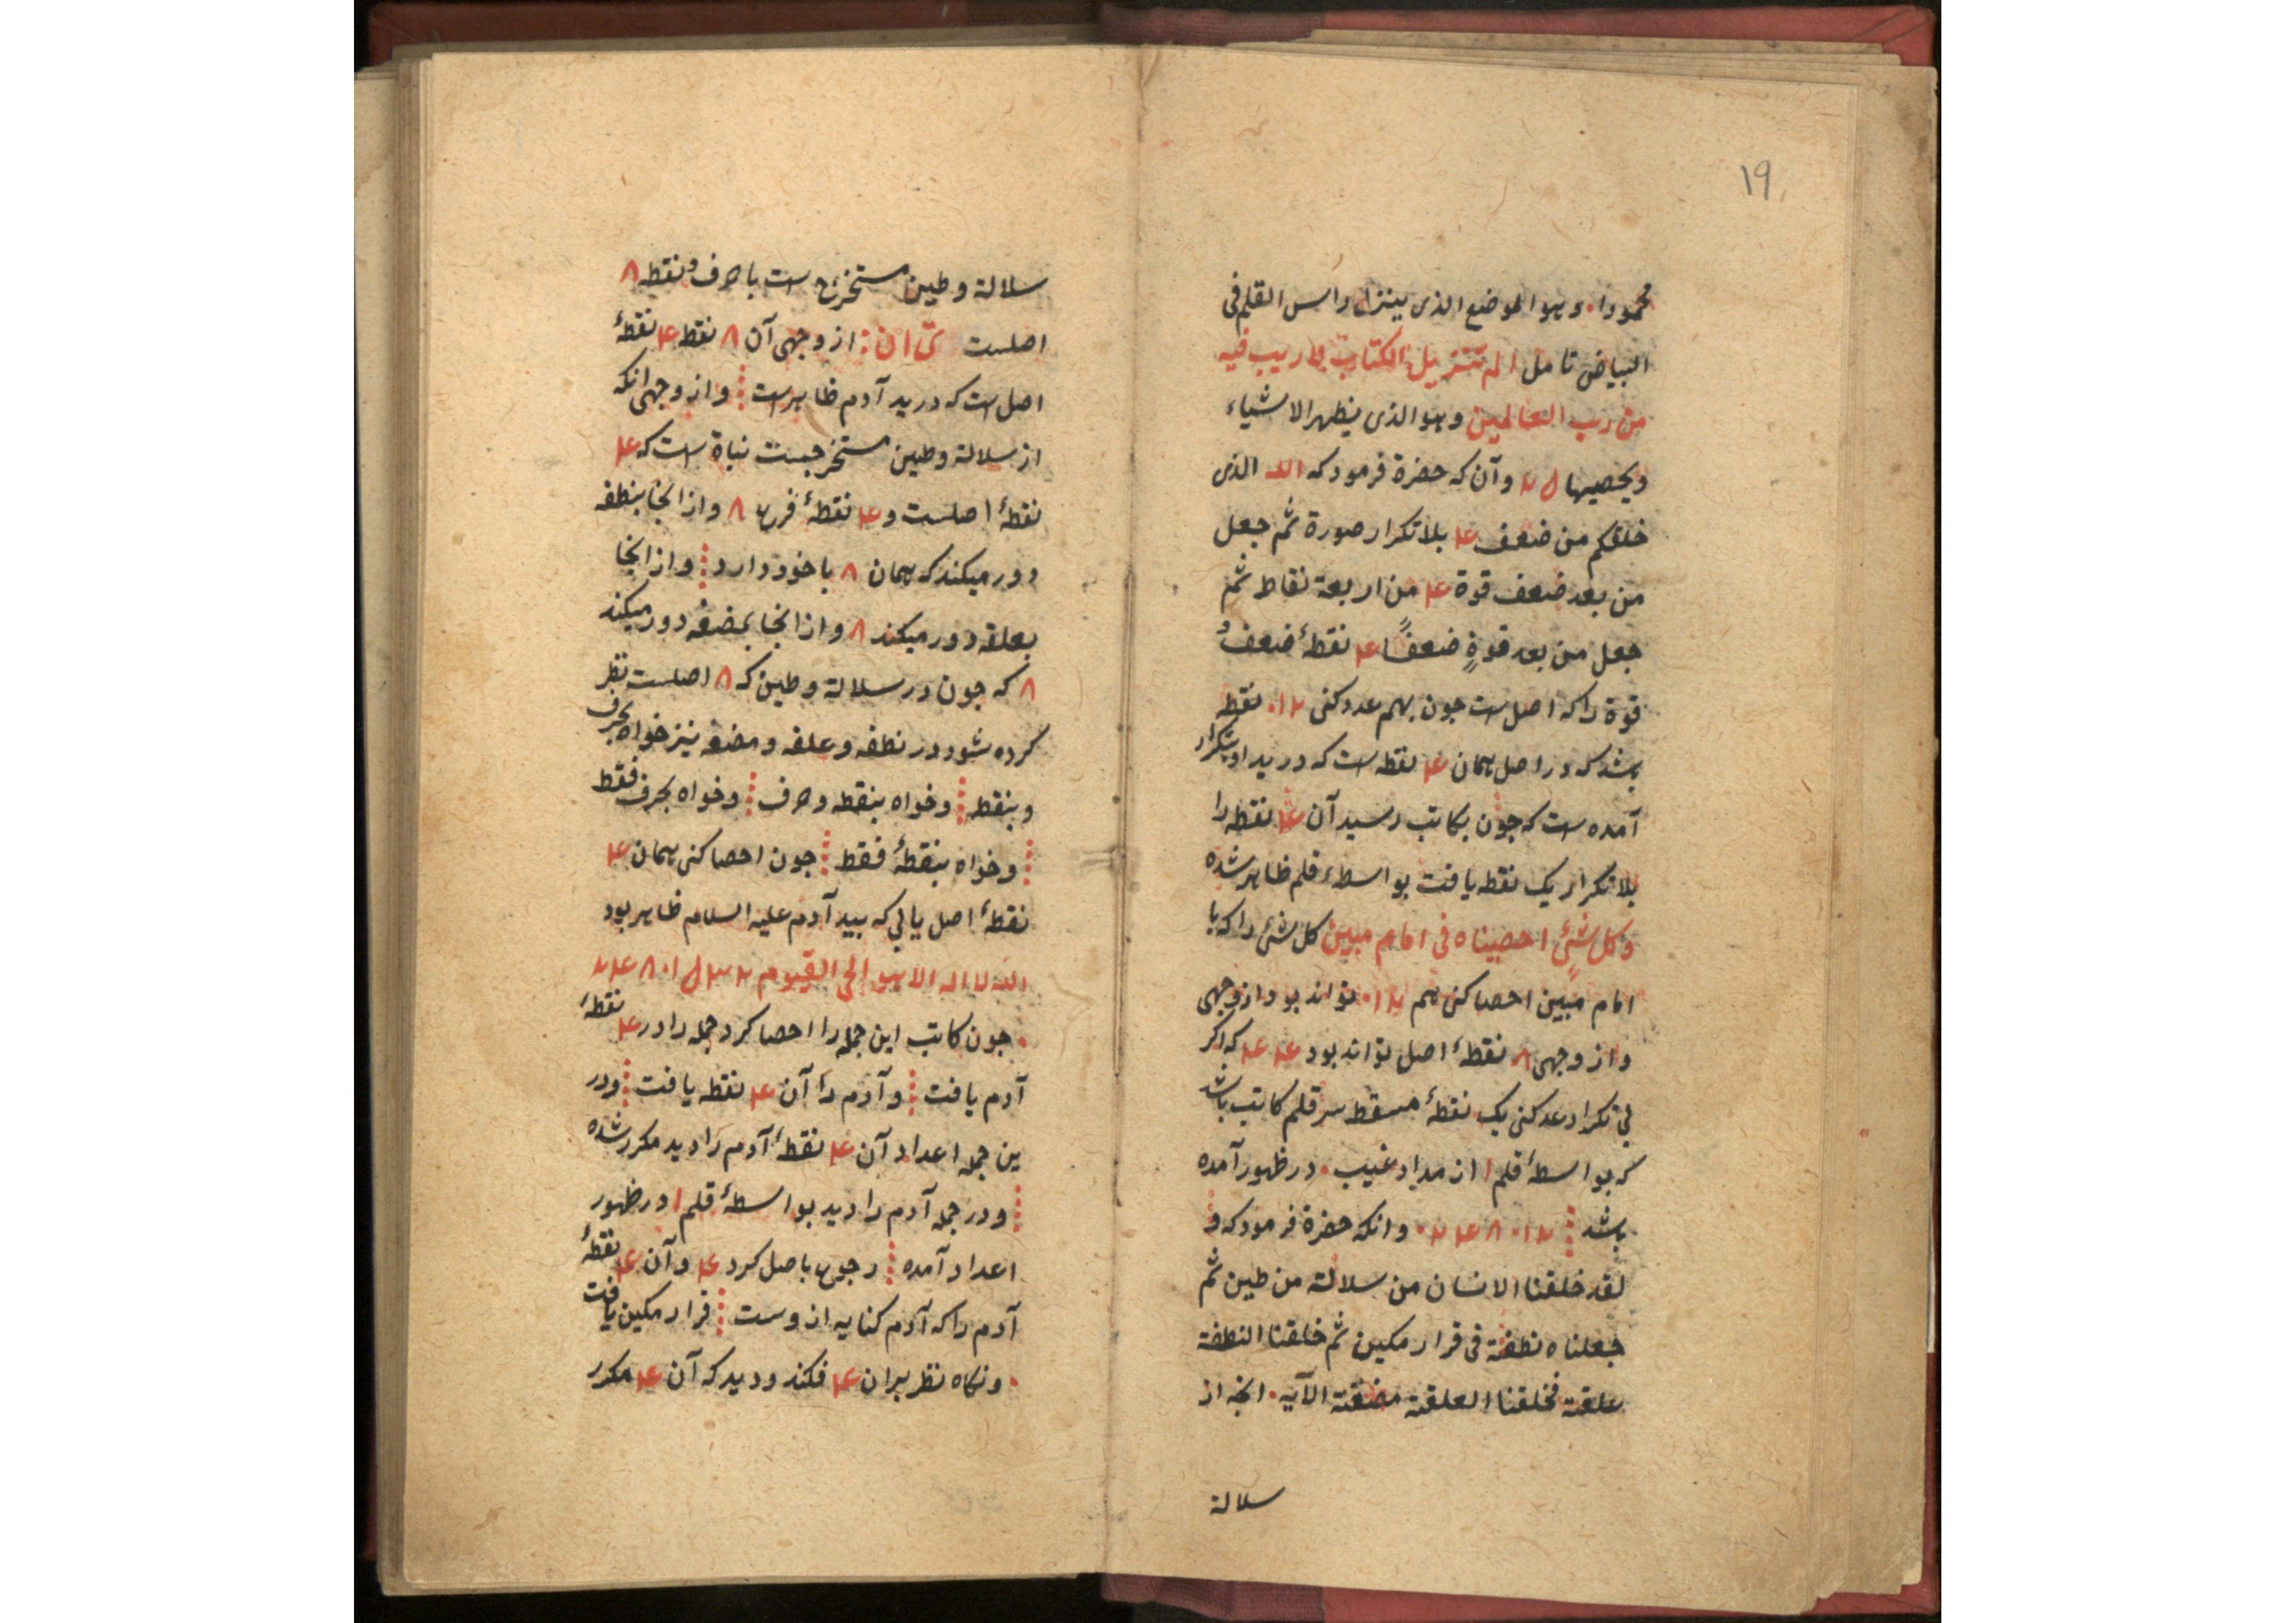 ١٩
محمودا · وهو الموضع الذی ینزل راس القلم فی
البیاض تامل الم تنزیل الکتاب لا ریب فیه
من رب العالمین وهو الذی یظهر الاشیاء
ویحصیها وآن که حضرة فرمود که الله الذی
خلقکم من ضعف ۴ بلا تکرار صورة ثم جعل
من بعد ضعف قوة ۴ من اربعة نقاط ثم
جعل من بعد قوةٍ ضعفًا ۴ نقطۀ ضعف و
قوة را که اصل است جون بهم عدد کنی ۱۲ · نقطه
باشد که در اصل همان ۴ نقطه است که در ید او بتکرار
آمده است که جون بکاتب رسید آن ۴ نقطه را
بلا تکرار یک نقطه یافت بواسطۀ قلم ظاهر شده
وکل شئٍ احصیناه فی امام مبین کل شئ را که با
امام مبین احصا کنی هم ۱۲ · تواند بود از وجهی
واز وجهی ۸ نقطۀ اصل تواند بود ۴ ۴ که اکر
بی تکرار عد کنی یک نقطۀ مسقط سر قلم کاتب باشد
که بواسطۀ قلم ا از مداد غیب · در ظهور آمده
باشد ⁞ ۱۲ · ۸ ۴ ۲ · وانکه حضرة فرمود که و
لقد خلقنا الانسان من سلالة من طین ثم
جعلناه نطفة فی قرار مکین ثم خلقنا النطفة
علقة فخلقنا العلقة مضغة الآیه · انجه از
سلالة
سلالة وطین مستخرج است با حرف و نقطه ۸
اصلست ن ا ن : از وجهی آن ۸ نقط ۴ نقطۀ
اصل است که در ید آدم ظاهر است ⁞ واز وجهی انکه
از سلالة وطین مستخرجست نباة است که ۴
نقطۀ اصلست و ۴ نقطۀ فرع ۸ واز انجا بنطفه
دور میکند که همان ۸ با خود دارد ⁞ واز انجا
بعلقه دور میکند ۸ واز انجا بمضغه دور میکند
۸ که جون در سلالة وطین که ۸ اصلست نظر
کرده شود در نطفه وعلقه ومضغه نیز خواه بحرف
وبنقط ⁞ وخواه بنقطه وحرف ⁞ وخواه بحرف فقط
⁞ وخواه بنقطۀ فقط ⁞ جون احصا کنی همان ۴
نقطۀ اصل یابی که بید آدم علیه السلام ظاهر بود
الله لا اله الا هو الحی القیوم
· جون کاتب این جمله را احصا کرد جمله را در ۴ نقطۀ
آدم یافت ⁞ وآدم را آن ۴ نقطه یافت ⁞ ودر
ین جمله اعداد آن ۴ نقطۀ آدم را دید مکرر شده
⁞ ودر جمله آدم را دید بواسطۀ قلم ا در ظهور
اعداد آمده ⁞ رجوع باصل کرد ۴ وآن ۴ نقطۀ
آدم را که آدم کنایه از وست ⁞ قرار مکین یافت
· ونکاه نظر بران ۴ فکند ودید که آن ۴ مکرر